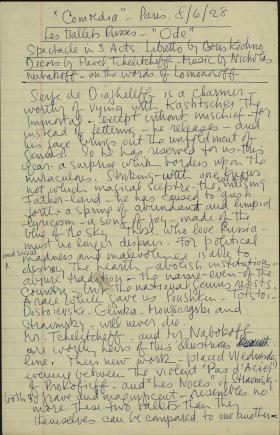 "Comoedia" - Paris, 8/6/28
Les Ballets Russes - "Ode"
Spectacle in 3 Acts. Libretto by Boris Kochno
Decors by Pavel Tchelitcheff - Music by Nicholas
Nabokoff - on the words of Lomonosoff
Serge de Diaghileff is a charmer -
worthy of vying with Kashtschei the
Immortal - except without mischief - for
instead of fettering - he releases - and
his face brings out the
genius. So he has reserved for us - this
year - a surprise which borders upon the
miraculous. Striking - with one
not which magical sceptre - the missing
Father-land - he has caused to gush
forth - a spring of abundant and limpid
lyricism - a song of joy - made of the
blue of the sky. Those, who love Russia -
must no longer despair. For political
and social
madness and malevolence is able to
destroy the earth - abolish institutions -
abjure tradition - the name - even - of the
country - but the national genius resists.
A race which gave us Poushkin - Tolstoi -
Dostoievski - Glinka - Moussorgski and
Stravinsky - will never die.
Mr. Tchelitcheff - and Mr. Nabokoff
are worthy heirs of this illustrious
line. Their new work - placed Wednesday
evening between the violent "Pas d'Acier"
of Prokofieff - and "Les Noces" of Stravinsky
both grave and magnificent - resembles no
more these two ballets than they
themselves can be compared to one another -